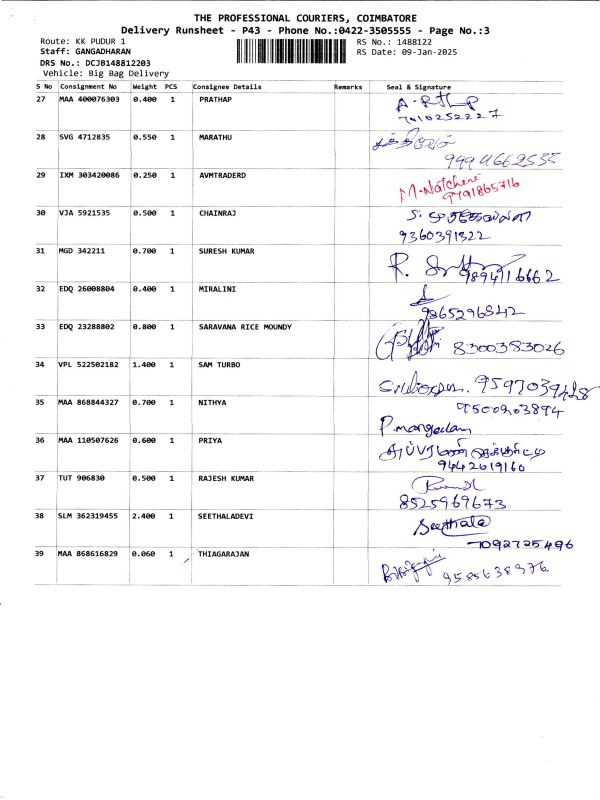 THE PROFESSIONAL COURIERS, COIMBATORE
Delivery Runsheet - P43 - Phone No.:0422-3505555 - Page No.:3
Route: KK PUDUR 1 RS No.: 1488122
Staff: GANGADHARAN RS Date: 09-Jan-2025
DRS No.: DCJB148812203
Vehicle: Big Bag Delivery
S No Consignment No Weight PCS Consignee Details Remarks Seal & Signature
27 MAA 400076303 0.400 1 PRATHAP
28 SVG 4712835 0.550 1 MARATHU
29 IXM 303420086 0.250 1 AVMTRADERD M.Natchene
9791865716
30 VJA 5921535 0.500 1 CHAINRAJ
9360391322
31 MGD 342211 0.700 1 SURESH KUMAR R.
9894116662
32 EDQ 26008804 0.400 1 MIRALINI
9865296842
33 EDQ 23288802 0.800 1 SARAVANA RICE MOUNDY 8300383026
34 VPL 522502182 1.400 1 SAM TURBO
35 MAA 868844327 0.700 1 NITHYA 9500203894
P.mangalam
36 MAA 110507626 0.600 1 PRIYA
9442619160
37 TUT 906830 0.500 1 RAJESH KUMAR
8525969673
38 SLM 362319455 2.400 1 SEETHALADEVI Seethala
7092725496
39 MAA 868616829 0.060 1 THIAGARAJAN 9585638976